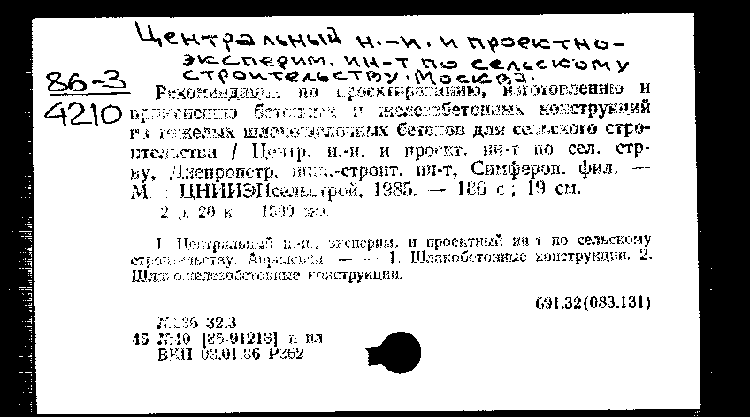 Центральный н.-и. и проектно-
эксперим. ин-т по сельскому
строительству. Москва.
86-3
4210
Рекомендации по проектированию, изготовлению и
применению бетонных и железобетонных конструкций
из тяжелых шлакощелочных бетонов для сельского стро-
ительства / Центр. н.-и. и проект. ин-т по сел. стр-
ву, Днепропетр. инж.-строит. ин-т, Симфероп. фил. —
М. : ЦНИИЭПсельстрой, 1985. — 186 с ; 19 см.
2 р. 20 к 1500 экз.
1. Центральный н.-и., эксперим. и проектный ин-т по сельскому
строительству. — — 1. Шлакобетонные конструкции. 2.
Шлакожелезобетонные конструкции.
691.32(083.131)
32.3
15 №10 [85-91218] п. пл
ВКП 03.01.86 Р262